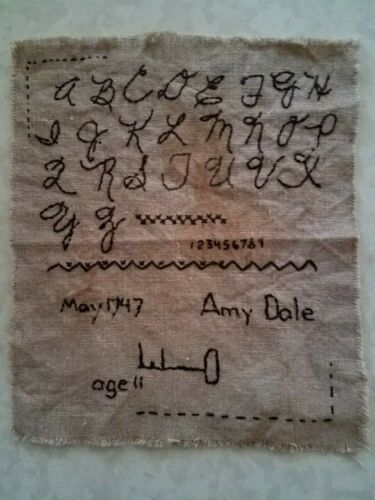 A B C D E F G H
I J K L M N O P
Q R S T U V X
Y Z
123456789
May 1747 Amy Dale
age 11